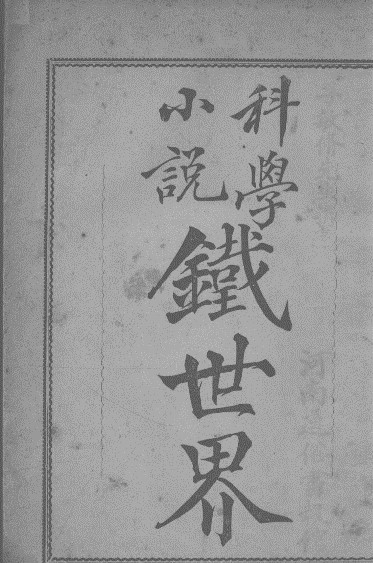 科學
小說
鐵世界